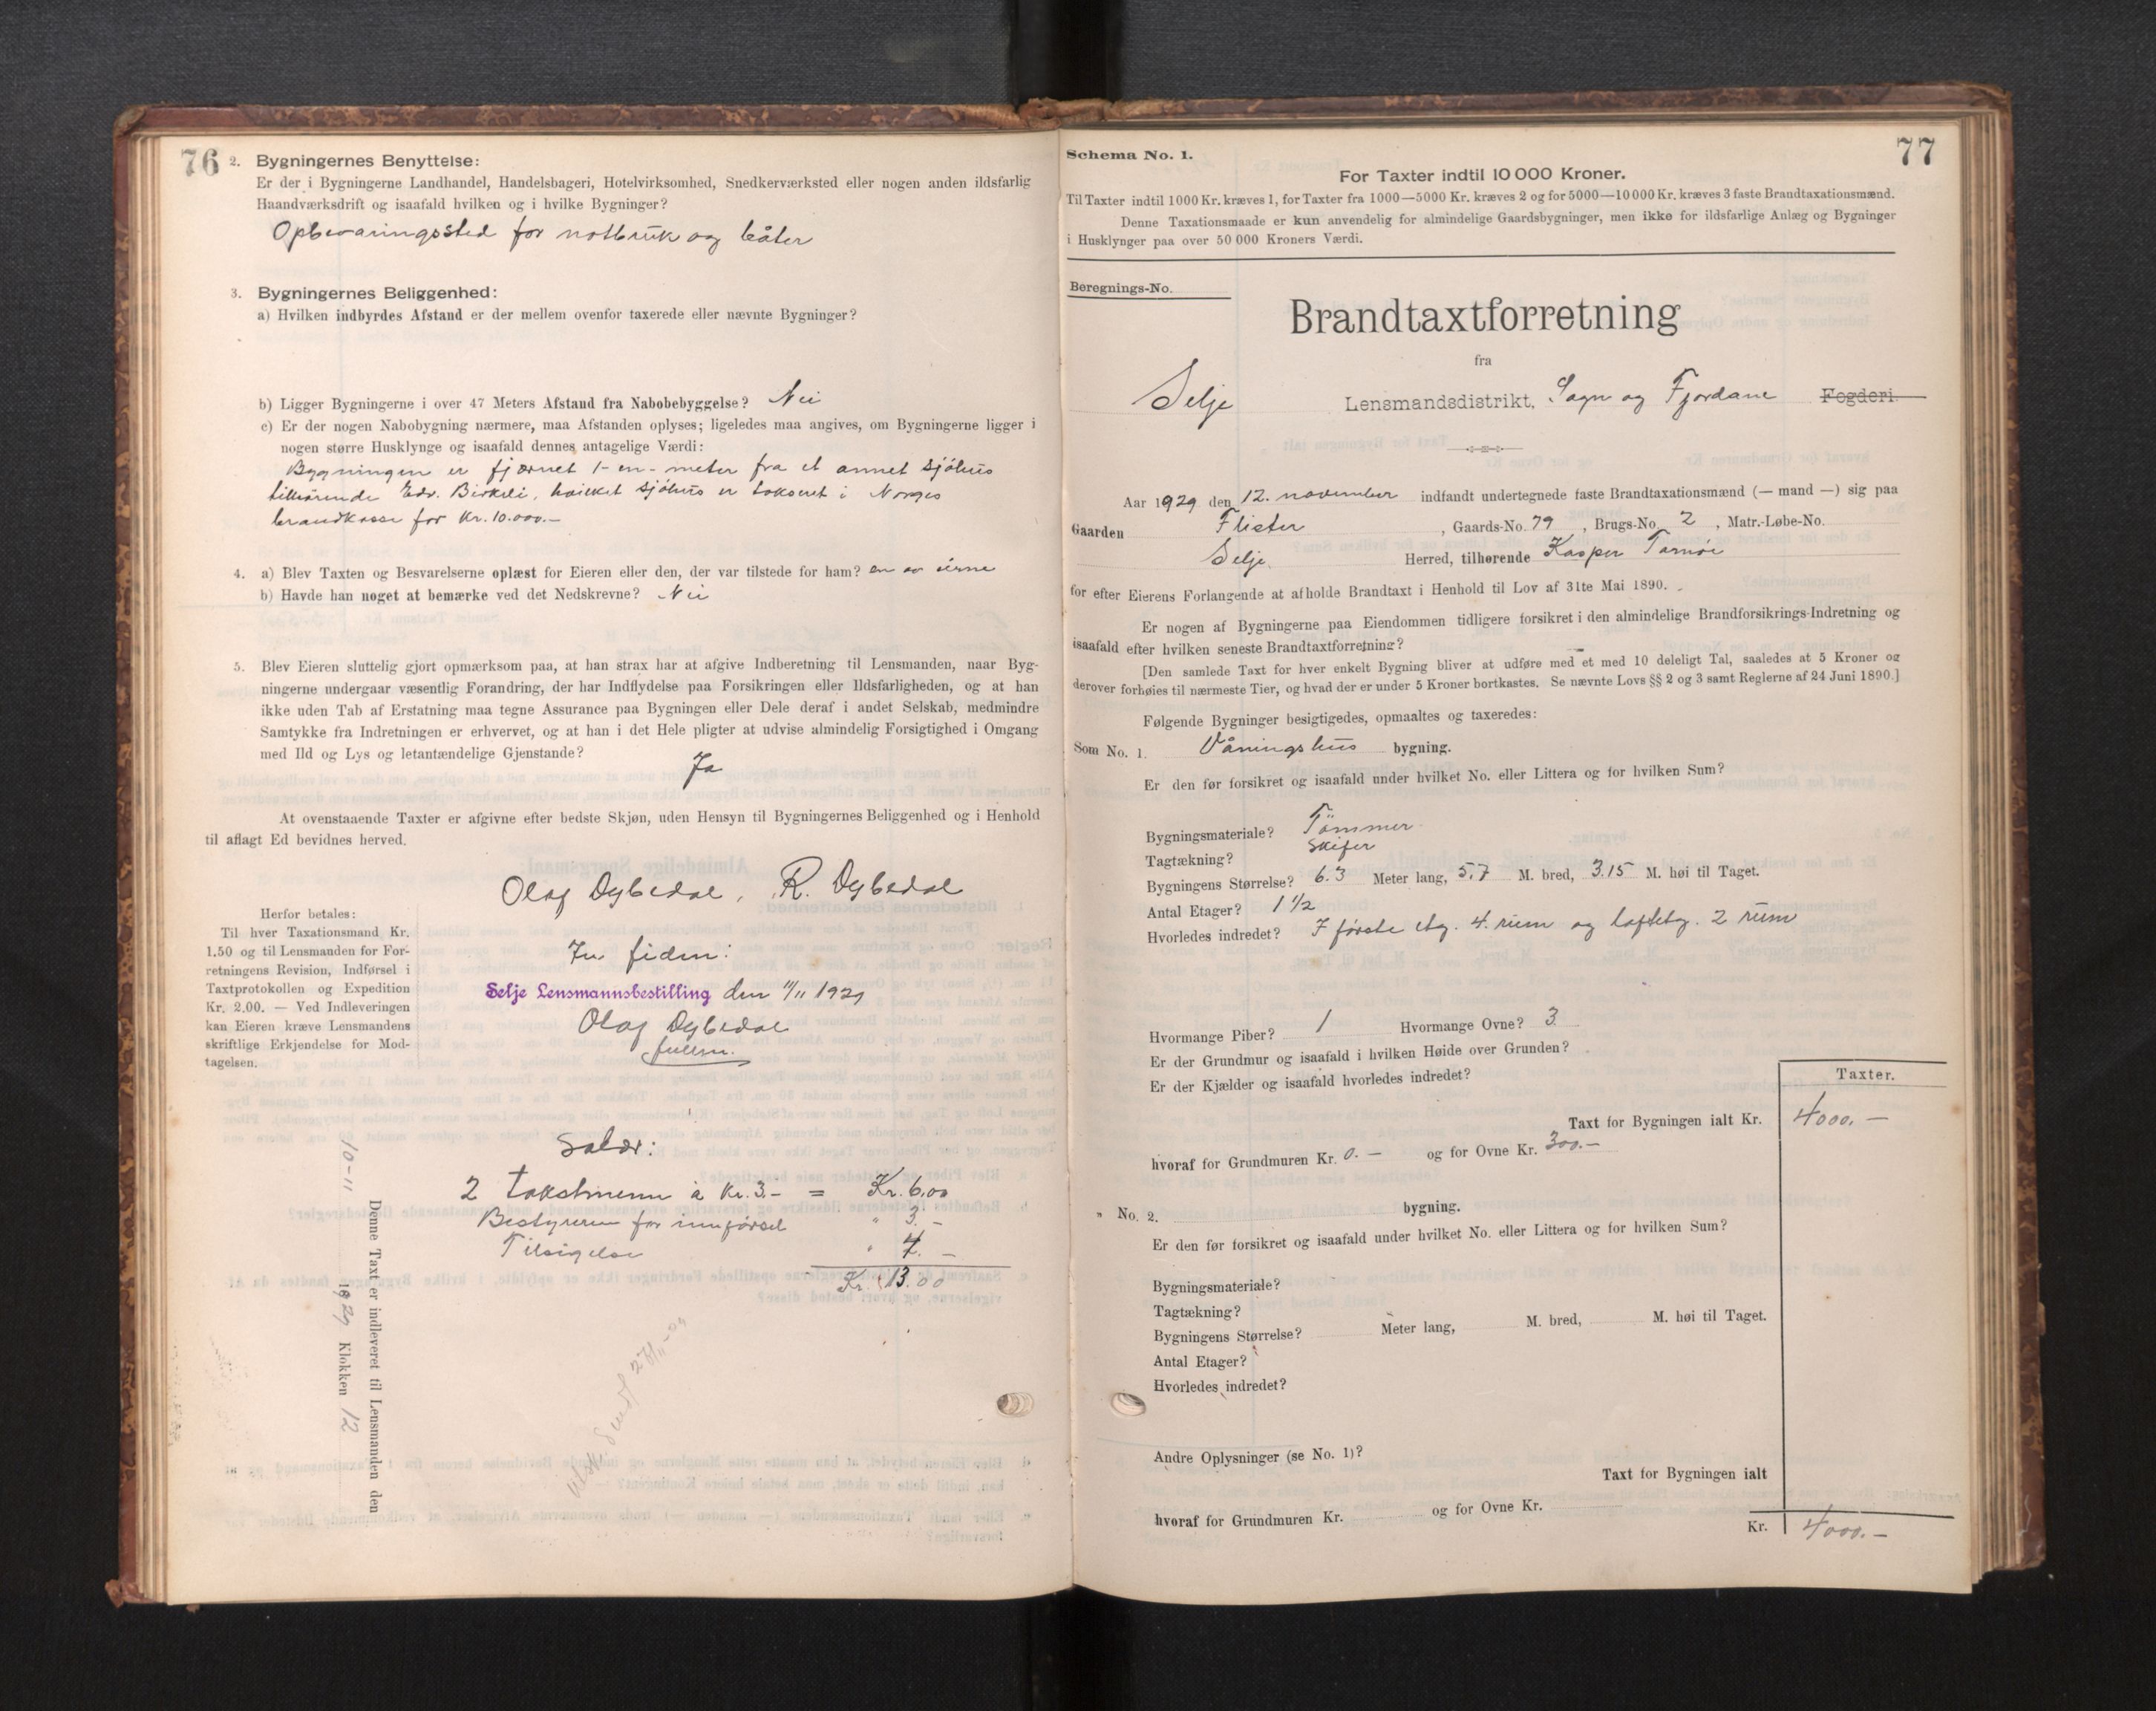 76
2. Bygningernes Benyttelse:
Er der i Bygningerne Landhandel, Handelsbageri, Hotelvirksomhed, Snedkerværksted eller nogen anden ildsfarlig
Haandværksdrift og isaafald hvilken og i hvilke Bygninger?
Opbevaringssted for notbruk og båter
3. Bygningernes Beliggenhed:
a) Hvilken indbyrdes Afstand er der mellem ovenfor taxerede eller nævnte Bygninger?
b) Ligger Bygningerne i over 47 Meters Afstand fra Nabobebyggelse? Nei
c) Er der nogen Nabobygning nærmere, maa Afstanden oplyses; ligeledes maa angives, om Bygningerne ligger i
nogen større Husklynge og isaafald dennes antagelige Værdi:
Bygningen er fjærnet 1-en-meter fra et annet sjöhus
tilhörende Edv. Birkeli, hvilket sjöhus er taksert i Norges
brandkasse for Kr. 10.000.–
4. a) Blev Taxten og Besvarelserne oplæst for Eieren eller den, der var tilstede for ham? en av eierne
b) Havde han noget at bemærke ved det Nedskrevne? Nei
5. Blev Eieren sluttelig gjort opmærksom paa, at han strax har at afgive Indberetning til Lensmanden, naar Byg-
ningerne undergaar væsentlig Forandring, der har Indflydelse paa Forsikringen eller Ildsfarligheden, og at han
ikke uden Tab af Erstatning maa tegne Assurance paa Bygningen eller Dele deraf i andet Selskab, medmindre
Samtykke fra Indretningen er erhvervet, og at han i det Hele pligter at udvise almindelig Forsigtighed i Omgang
med Ild og Lys og letantændelige Gjenstande?
Ja
At ovenstaaende Taxter er afgivne efter bedste Skjøn, uden Hensyn til Bygningernes Beliggenhed og i Henhold
til aflagt Ed bevidnes herved.
Olaf Dybedal, R. Dybedal
Herfor betales:
Til hver Taxationsmand Kr.
1,50 og til Lensmanden for For-
retningens Revision, Indførsel i
Taxtprotokollen og Expedition
Kr. 2,00. — Ved Indleveringen
kan Eieren kræve Lensmandens
skriftlige Erkjendelse for Mod-
tagelsen.
In fidem:
Selje Lensmannsbestilling den 11/11 1929
Olaf Dybedal
fullm.
Salær:
2 takstmenn à Kr. 3.– = Kr. 6.00
Bestyreren for innförsel " 3.–
Tilsigelse " 4.–
Kr. 13.00
Denne Taxt er indleveret til Lensmanden den
10-11 1929 Klokken 12
77
Schema No. 1.
For Taxter indtil 10 000 Kroner.
Til Taxter indtil 1000 Kr. kræves 1, for Taxter fra 1000—5000 Kr. kræves 2 og for 5000—10 000 Kr. kræves 3 faste Brandtaxationsmænd.
Denne Taxationsmaade er kun anvendelig for almindelige Gaardsbygninger, men ikke for ildsfarlige Anlæg og Bygninger
i Husklynger paa over 50 000 Kroners Værdi.
Beregnings-No.
Brandtaxtforretning
fra
Selje Lensmandsdistrikt, Sogn og Fjordane Fogderi.
Aar 1929 den 12. november indfandt undertegnede faste Brandtaxationsmænd (— mand —) sig paa
Gaarden Flister, Gaards-No. 79, Brugs-No. 2, Matr.-Løbe-No.
Selje Herred, tilhørende Kasper
for efter Eierens Forlangende at afholde Brandtaxt i Henhold til Lov af 31te Mai 1890.
Er nogen af Bygningerne paa Eiendommen tidligere forsikret i den almindelige Brandforsikrings-Indretning og
isaafald efter hvilken seneste Brandtaxtforretning?
[Den samlede Taxt for hver enkelt Bygning bliver at udføre med et med 10 deleligt Tal, saaledes at 5 Kroner og
derover forhøies til nærmeste Tier, og hvad der er under 5 Kroner bortkastes. Se nævnte Lovs §§ 2 og 3 samt Reglerne af 24 Juni 1890.]
Følgende Bygninger besigtigedes, opmaaltes og taxeredes:
Som No. 1. Våningshus bygning.
Er den før forsikret og isaafald under hvilket No. eller Littera og for hvilken Sum?
Bygningsmateriale? Tömmer
Tagtækning? Skifer
Bygningens Størrelse? 6.3 Meter lang, 5,7 M. bred, 3.15 M. høi til Taget.
Antal Etager? 1 1/2
Hvorledes indredet? I förste etg. 4. rum og loftetg. 2 rum
Hvormange Piber? 1 Hvormange Ovne? 3
Er der Grundmur og isaafald i hvilken Høide over Grunden?
Er der Kjælder og isaafald hvorledes indredet?
Taxter.
Taxt for Bygningen ialt Kr. 4000.–
hvoraf for Grundmuren Kr. 0.– og for Ovne Kr. 300.–
" No. 2. bygning.
Er den før forsikret og isaafald under hvilket No. eller Littera og for hvilken Sum?
Bygningsmateriale?
Tagtækning?
Bygningens Størrelse? Meter lang, M. bred, M. høi til Taget.
Antal Etager?
Hvorledes indredet?
Andre Oplysninger (se No. 1)?
Taxt for Bygningen ialt
hvoraf for Grundmuren Kr. og for Ovne Kr.
Kr. 4000.–